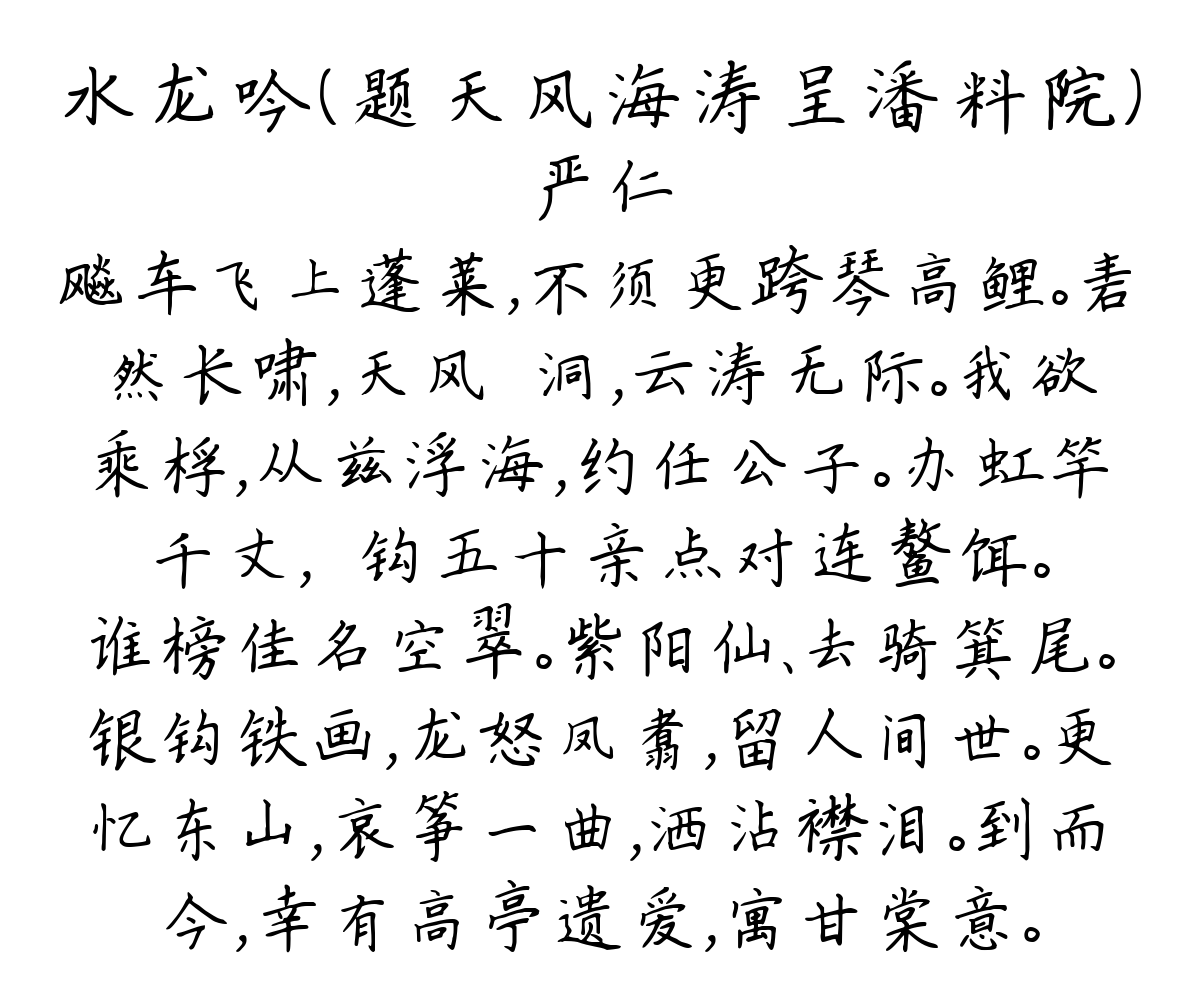 水龙吟(题天风海涛呈潘料院)
严仁
飚车飞上蓬莱,不须更跨琴高鲤。砉
然长啸,天风 洞,云涛无际。我欲
乘桴,从兹浮海,约任公子。办虹竿
千丈，钩五十亲点对连鳌饵。
谁榜佳名空翠。紫阳仙、去骑箕尾。
银钩铁画,龙怒凤翥,留人间世。更
忆东山,哀筝一曲,洒沾襟泪。到而
今,幸有高亭遗爱,寓甘棠意。